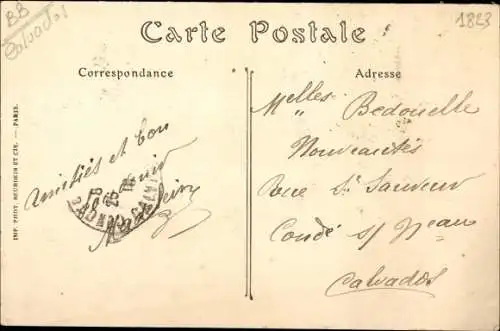 BB
Calvados
1823
Carte Postale
Correspondance
Adresse
Amitiés et bon
Melles Bedouelle
Nouveautés
Rue St Sauveur
Condé s/ Noireau
Calvados
IMP. PHOT. NEURDEIN ET CIE. — PARIS.